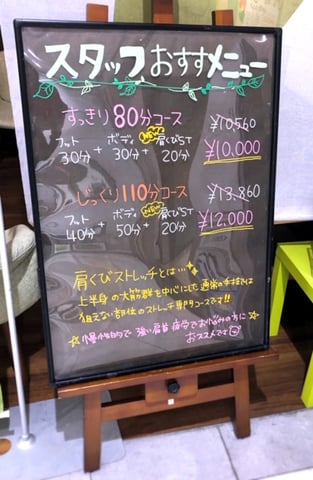 スタッフおすすメニュー
すっきり80分コース ¥10560
フット ボディ NEW 肩くびST
30分 + 30分 + 20分 ¥10,000
じっくり110分コース ¥13.860
フット ボディ NEW 肩くびST
40分 + 50分 + 20分 ¥12,000
肩くびストレッチとは…
上半身の大筋群を中心にした通常の手技では
狙えない部位のストレッチ専門コースです!!
☆慢性的で強い肩首疲労でお悩みの方に☆
おススメです